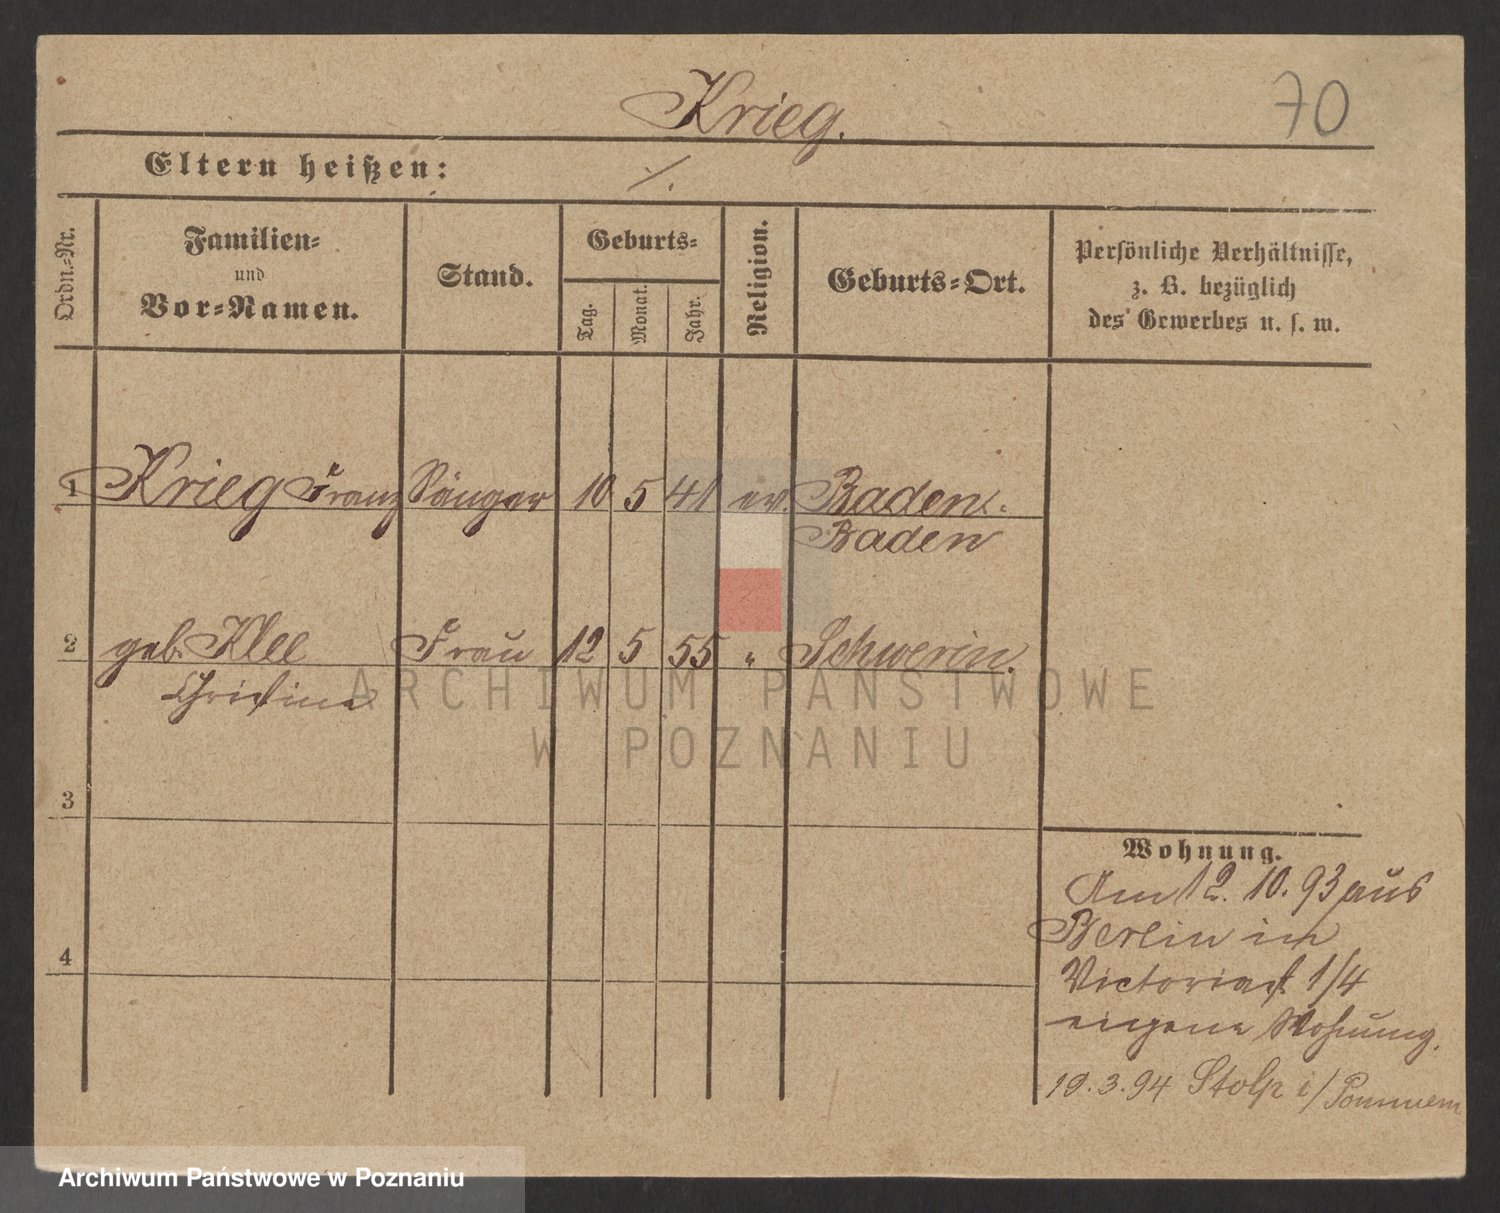 Krieg.
70
Eltern heißen: ⁒
Ordn.-Nr.
Familien-
und
Vor-Namen.
Stand.
Geburts-
Tag.
Monat.
Jahr.
Religion.
Geburts-Ort.
Persönliche Verhältnisse,
z. B. bezüglich
des Gewerbes u. s. w.
1 Krieg Franz Sänger 10 5 41 ev. Baden-
Baden
2 geb. Klee Frau 12 5 55 " Schwerin.
Christine
3
4
Wohnung.
Am 12. 10. 93 aus
Berlin in
Victoriast. 1/4
eigene Wohnung.
19.3.94 Stolp i/Pommern
ARCHIWUM PAŃSTWOWE
W POZNANIU
Archiwum Państwowe w Poznaniu